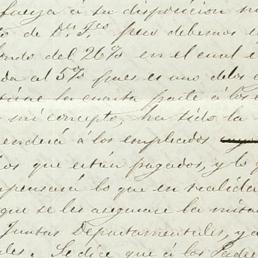 fuerza á su disposicion
to de D.n F.co pero debemos
fondo del 26% en el cual
da al 5% pues es uno de los
la cuarta parte á los
mi concepto, ha sido la
tenderá á los empleados
los que estan pagados, y lo
pensará lo que en realida
que se les asegurare la mita
Juntas Departamentales, y a
les. Se dice que á los Padre